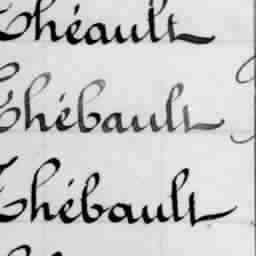 Théault
Thébault
Thébault